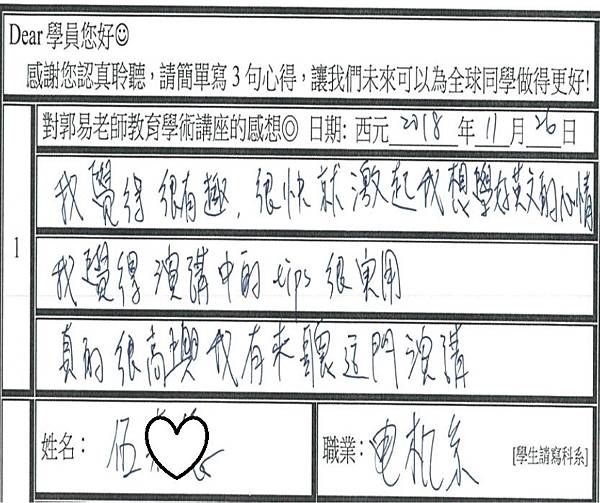 Dear 學員您好☺
感謝您認真聆聽，請簡單寫 3 句心得，讓我們未來可以為全球同學做得更好!
對郭易老師教育學術講座的感想◎ 日期: 西元 2018 年 11 月 26 日
1
我覺得很有趣，很快就激起我想學好英文的心情
我覺得演講中的 tips 很實用
真的很高興我有來聽這門演講
姓名： 伍
職業： 电机系 [學生請寫科系]